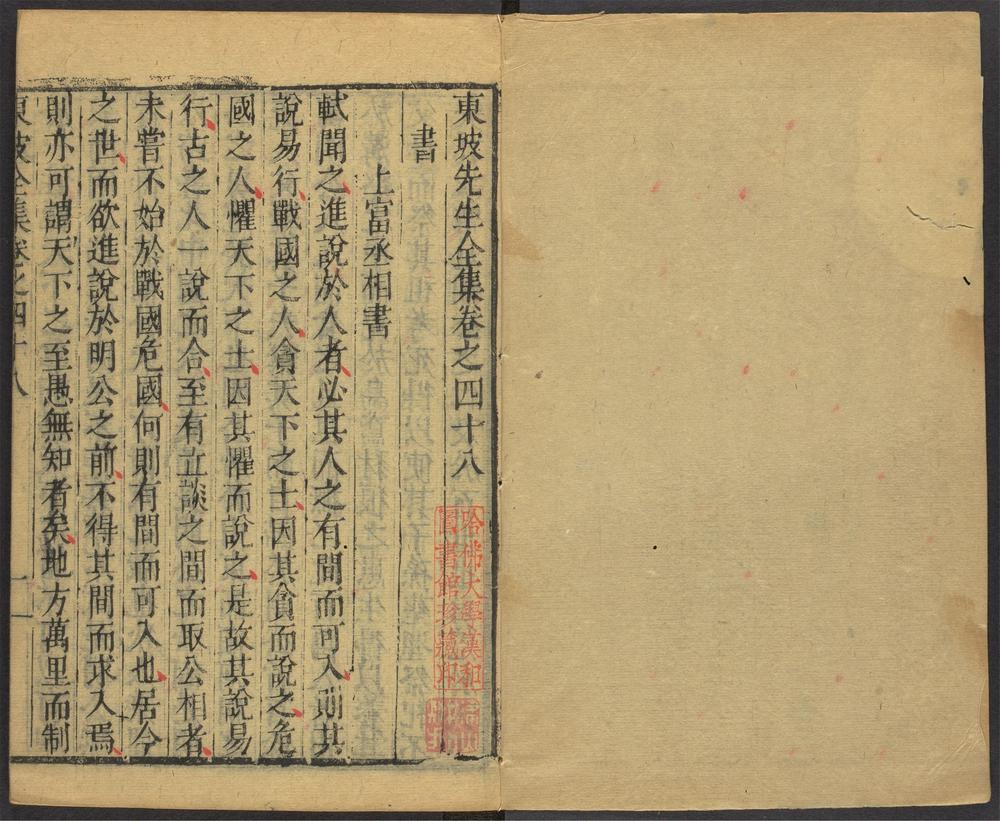 東坡先生全集卷之四十八
書
上富丞相書
軾聞之進說於人者必其人之有間而可入則其
說易行戰國之人貪天下之士因其貪而說之危
國之人懼天下之士因其懼而說之是故其說易
行古之人一說而合至有立談之間而取公相者
未嘗不始於戰國危國何則有間而可入也居今
之世而欲進說於明公之前不得其間而求入焉
則亦可謂天下之至愚無知者矣地方萬里而制
東坡全集卷之四十八 一
哈佛大學漢和
圖書館珍藏印